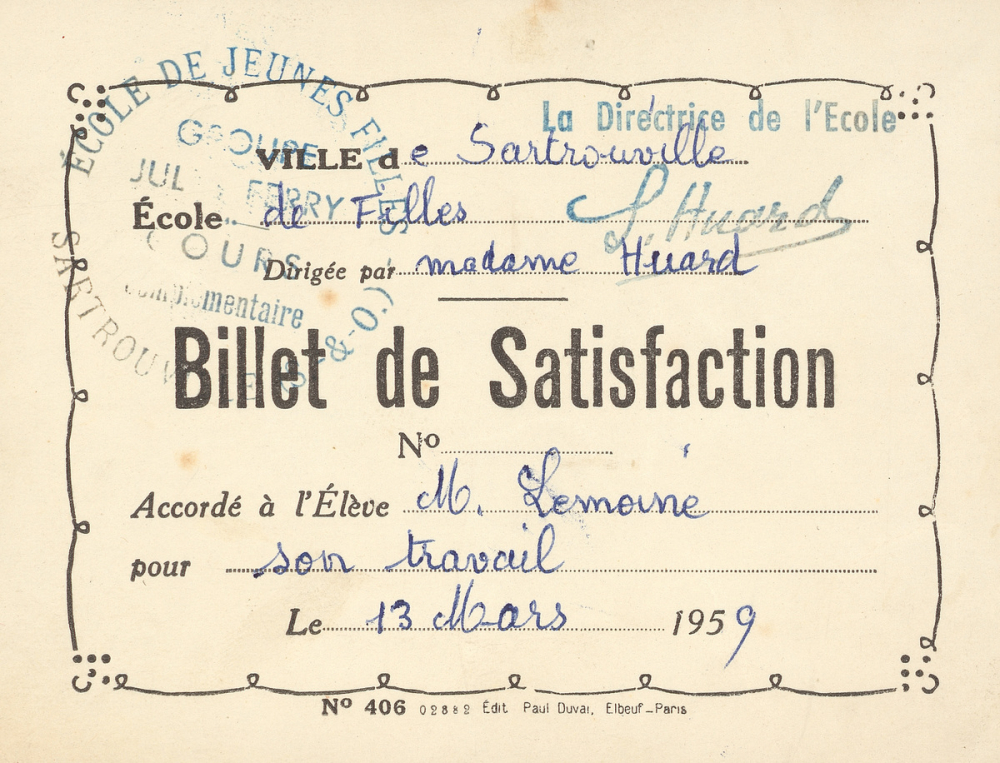 ÉCOLE DE JEUNES FILLES
GROUPE
FERRY
COURS
complémentaire
La Directrice de l'Ecole
VILLE de Sartrouville
École de Filles
Huard
Dirigée par madame Huard
Billet de Satisfaction
No
Accordé à l'Élève M. Lemoine
pour son travail
Le 13 Mars 1959
No 406 02882 Édit. Paul Duval, Elbeuf-Paris